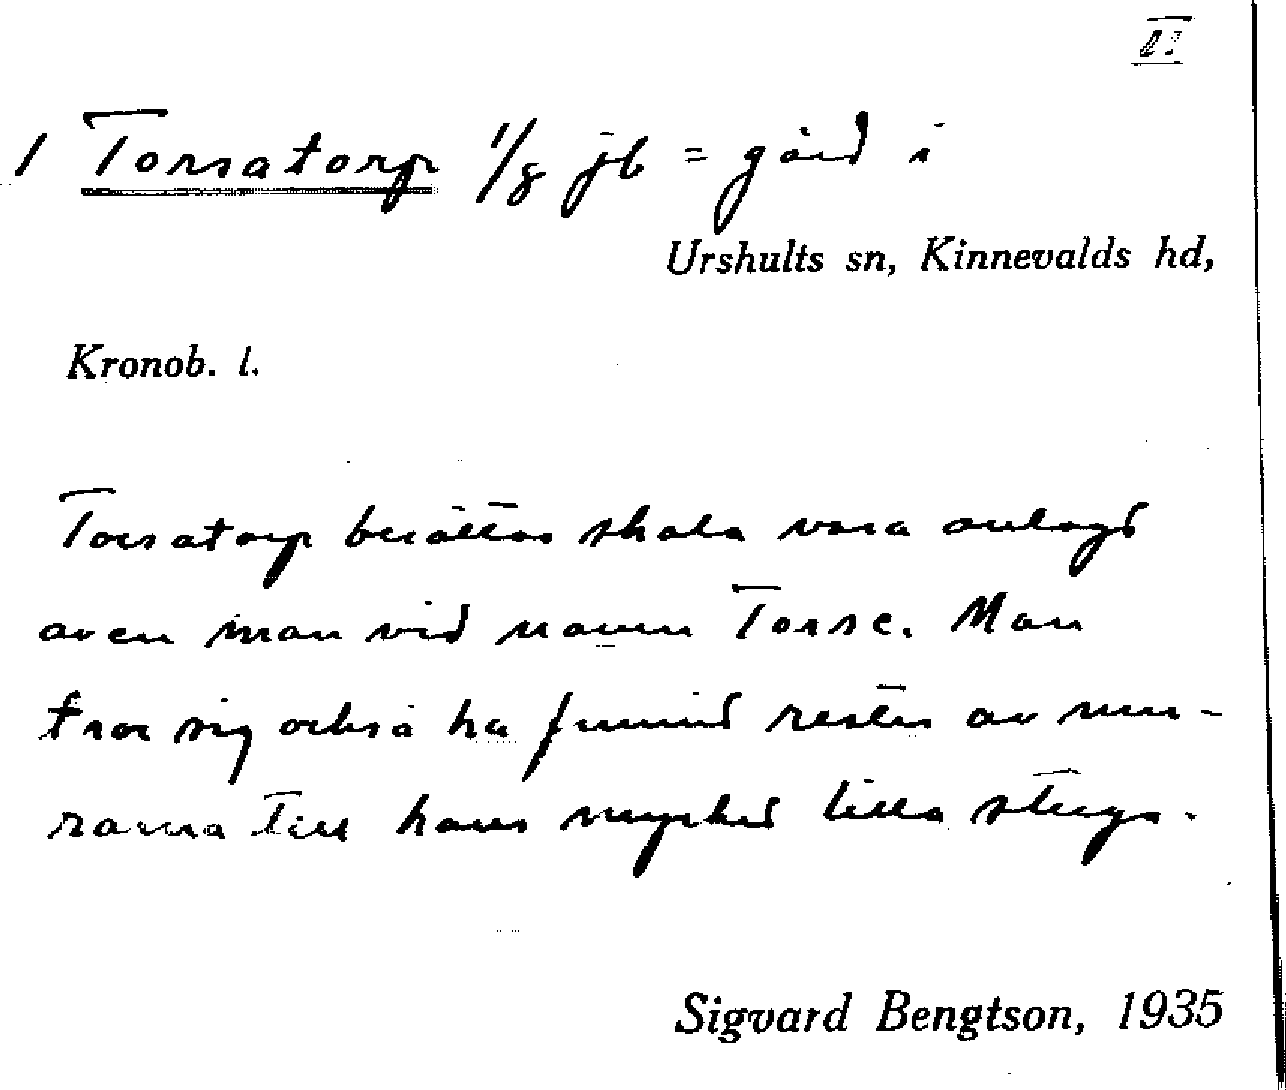 1 Torsatorp 1/8 jb = gård i
Urshults sn, Kinnevalds hd,
Kronob. l.
Torsatorp berättas skola vara anlagd
av en man vid namn Torse. Man
tror sig också ha funnid rester av mu-
rarna till hans myrked lilla stuga.
Sigvard Bengtson, 1935